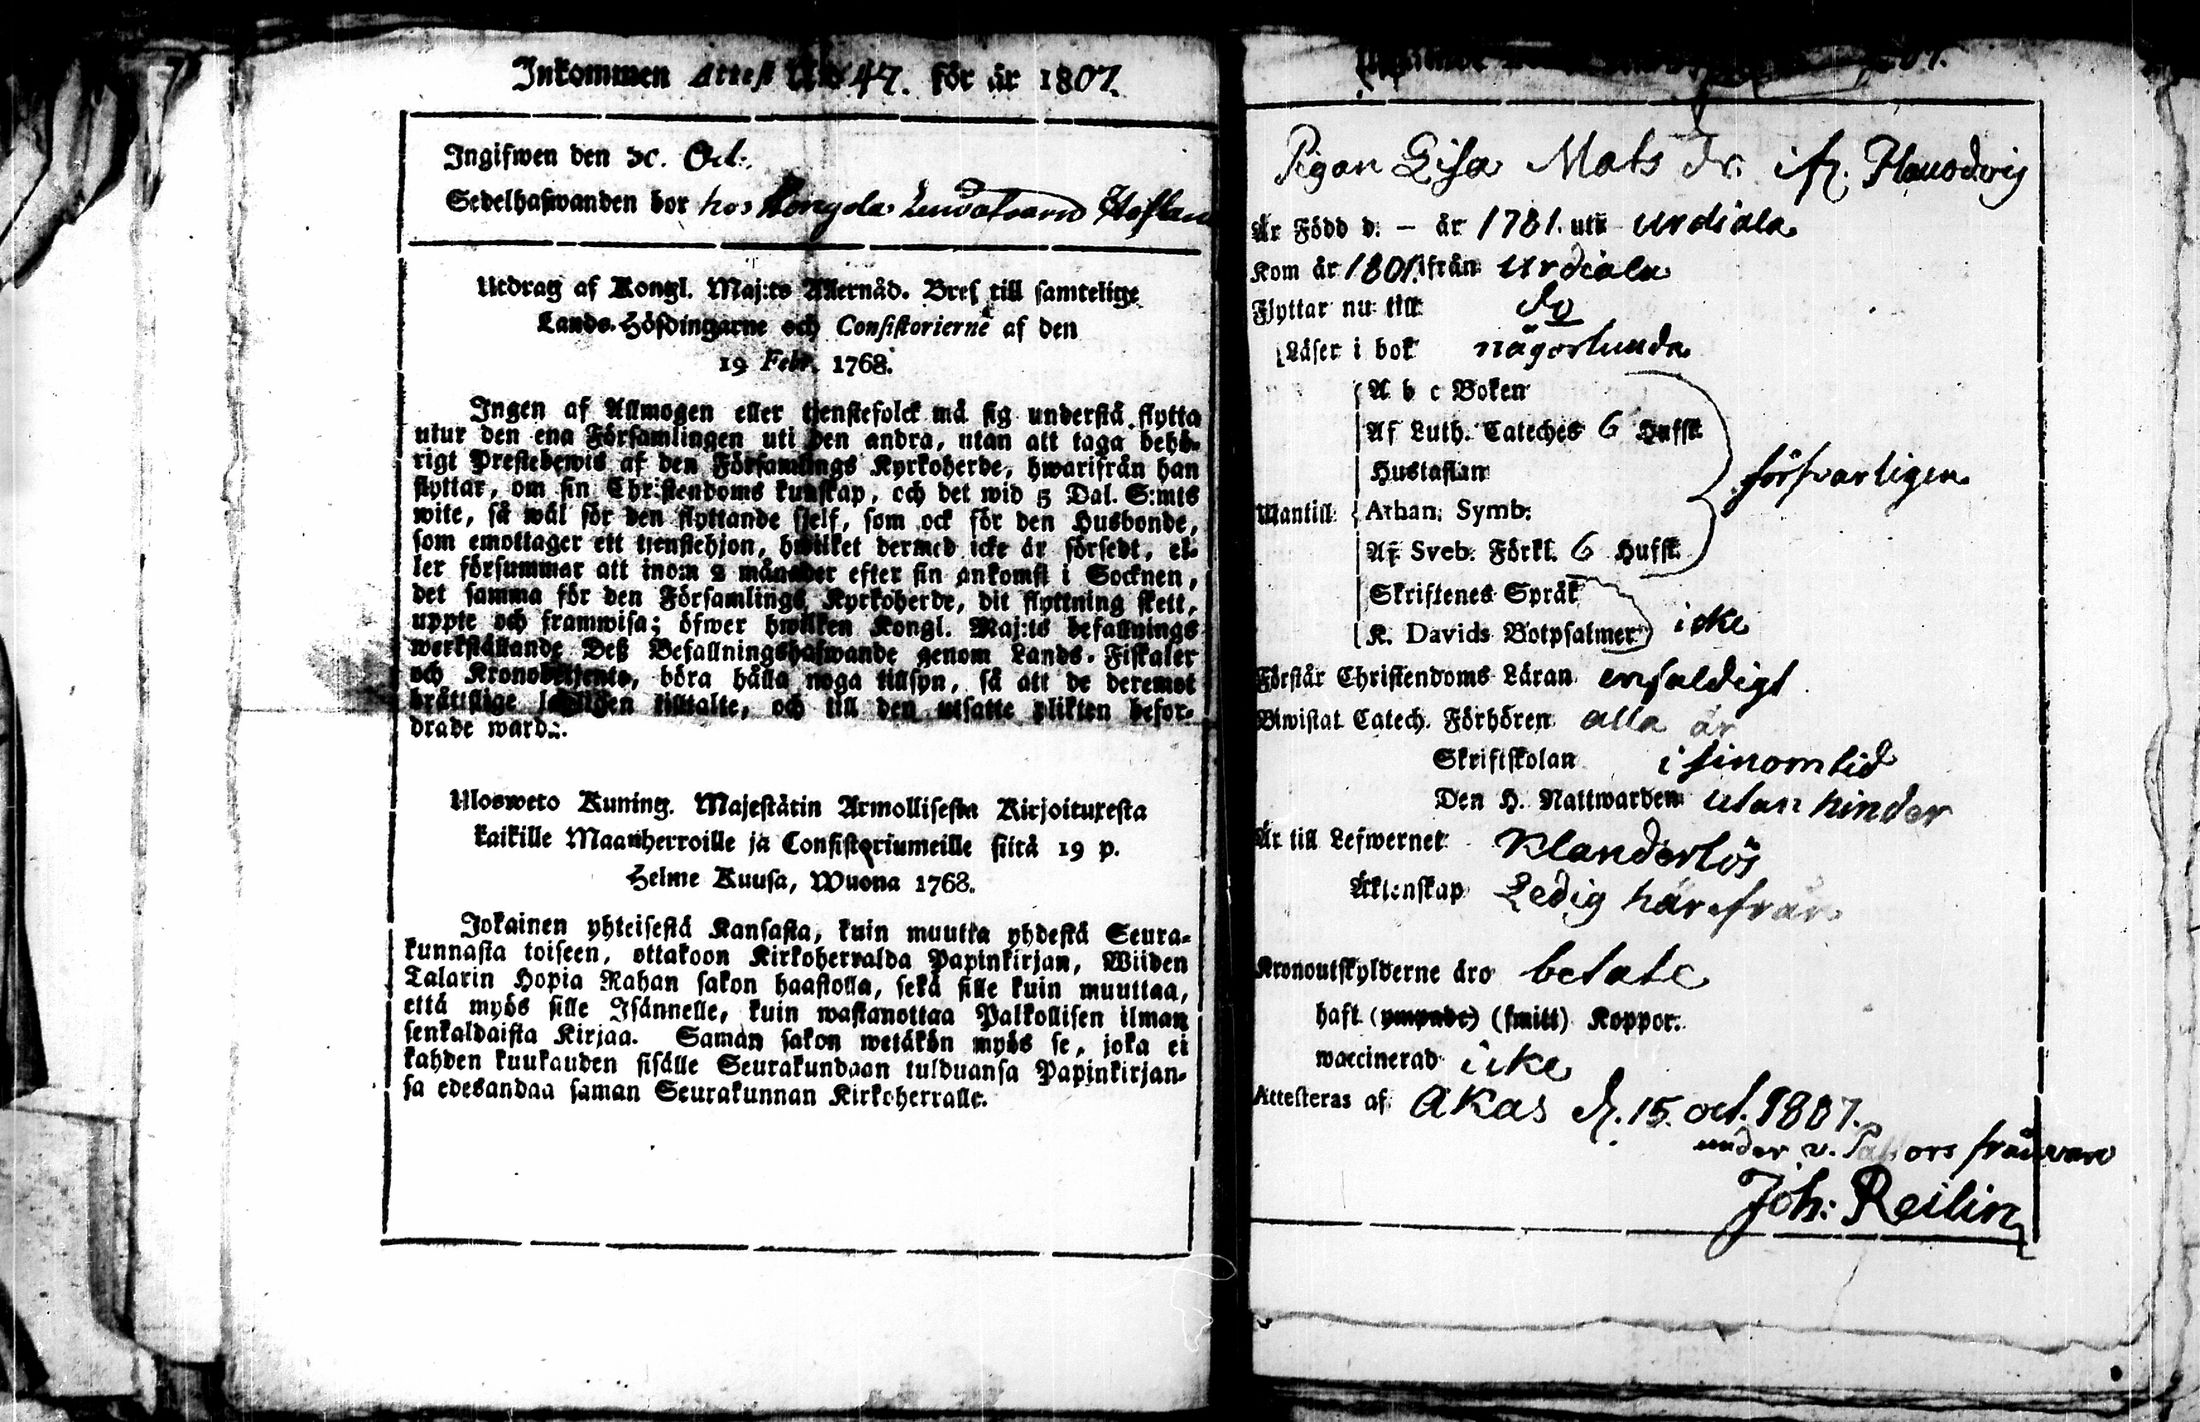 Inkommen Attest No 47. för år 1807.
Ingifwen den 30. Oct.
Sedelhafwanden bor hos
Utdrag af Kongl. Maj:ts Allernåd. Bref till samtelige
Lands-Höfdingarne och Consistorierne af den
19 Febr. 1768.
Ingen af Allmogen eller tjenstefolck må sig understå flytta
utur den ena Församlingen uti den andra, utan att taga behö-
rigt Prestebewis af den Församlings Kyrkoherde, hwarifrån han
flyttar, om sin Christendoms kunskap, och det wid 5 Dal. S:mts
wite, så wäl för den flyttande sjelf, som ock för den Husbonde,
som emottager ett tjenstehjon, hwilket dermed icke är försedt, el-
ler försummar att inom 2 månader efter sin ankomst i Socknen,
det samma för den Församlings Kyrkoherde, dit flyttning skett,
uppte och framwisa; öfwer hwilken Kongl. Maj:ts befallnings
werkställande Deß Befallningshafwande genom Lands-Fiskaler
och Kronobetjente, böra hålla noga tillsyn, så att de deremot
bråttslige lagligen tilltalte, och till den utsatte plikten befor-
drade warda.
Ulosweto Kuning. Majestätin Armollisesta Kirjoituxesta
kaikille Maanherroille ja Consistoriumeille siitä 19 p.
Helme Kuusa, Wuona 1768.
Jokainen yhteisestä Kansasta, kuin muutta yhdestä Seura-
kunnasta toiseen, ottakoon Kirkoherralda Papinkirjan, Wiiden
Talarin Hopia Rahan sakon haastolla, sekä sille kuin muuttaa,
että myös sille Isännelle, kuin wastanottaa Palkollisen ilman
senkaldaista Kirjaa. Saman sakon wetäkön myös se, joka ei
kahden kuukauden sisälle Seurakundaan tulduansa Papinkirjan-
sa edesandaa saman Seurakunnan Kirkoherralle.
Pigan Lisa Mats dr. ifr.
Är Född d. – år 1781. uti Urdiala
Kom år 1801. ifrån Urdiala
Flyttar nu till do
Läser i bok någorlunda
A b c Boken
Af Luth. Cateches 6 Hufst.
Hustaflan
Utantill Athan. Symb. försvarligen
Af Sveb. Förkl. 6 Hufst.
Skriftenes Språk
K. Davids Botpsalmer icke
Förstår Christendoms Läran enfaldigt
Biwistat Catech. Förhören alla år
Skriftskolan i sinom tid
Den H. Nattwarden utan hinder
Är till Lefwernet Klanderlös
Äktenskap Ledig härifrån
Kronoutskylderne äro betalte
haft (ympade) (smitt) Koppor.
waccinerad icke
Attesteras af Akas d. 15. oct. 1807.
under v. Pastors frånvaro
Joh: Reilin